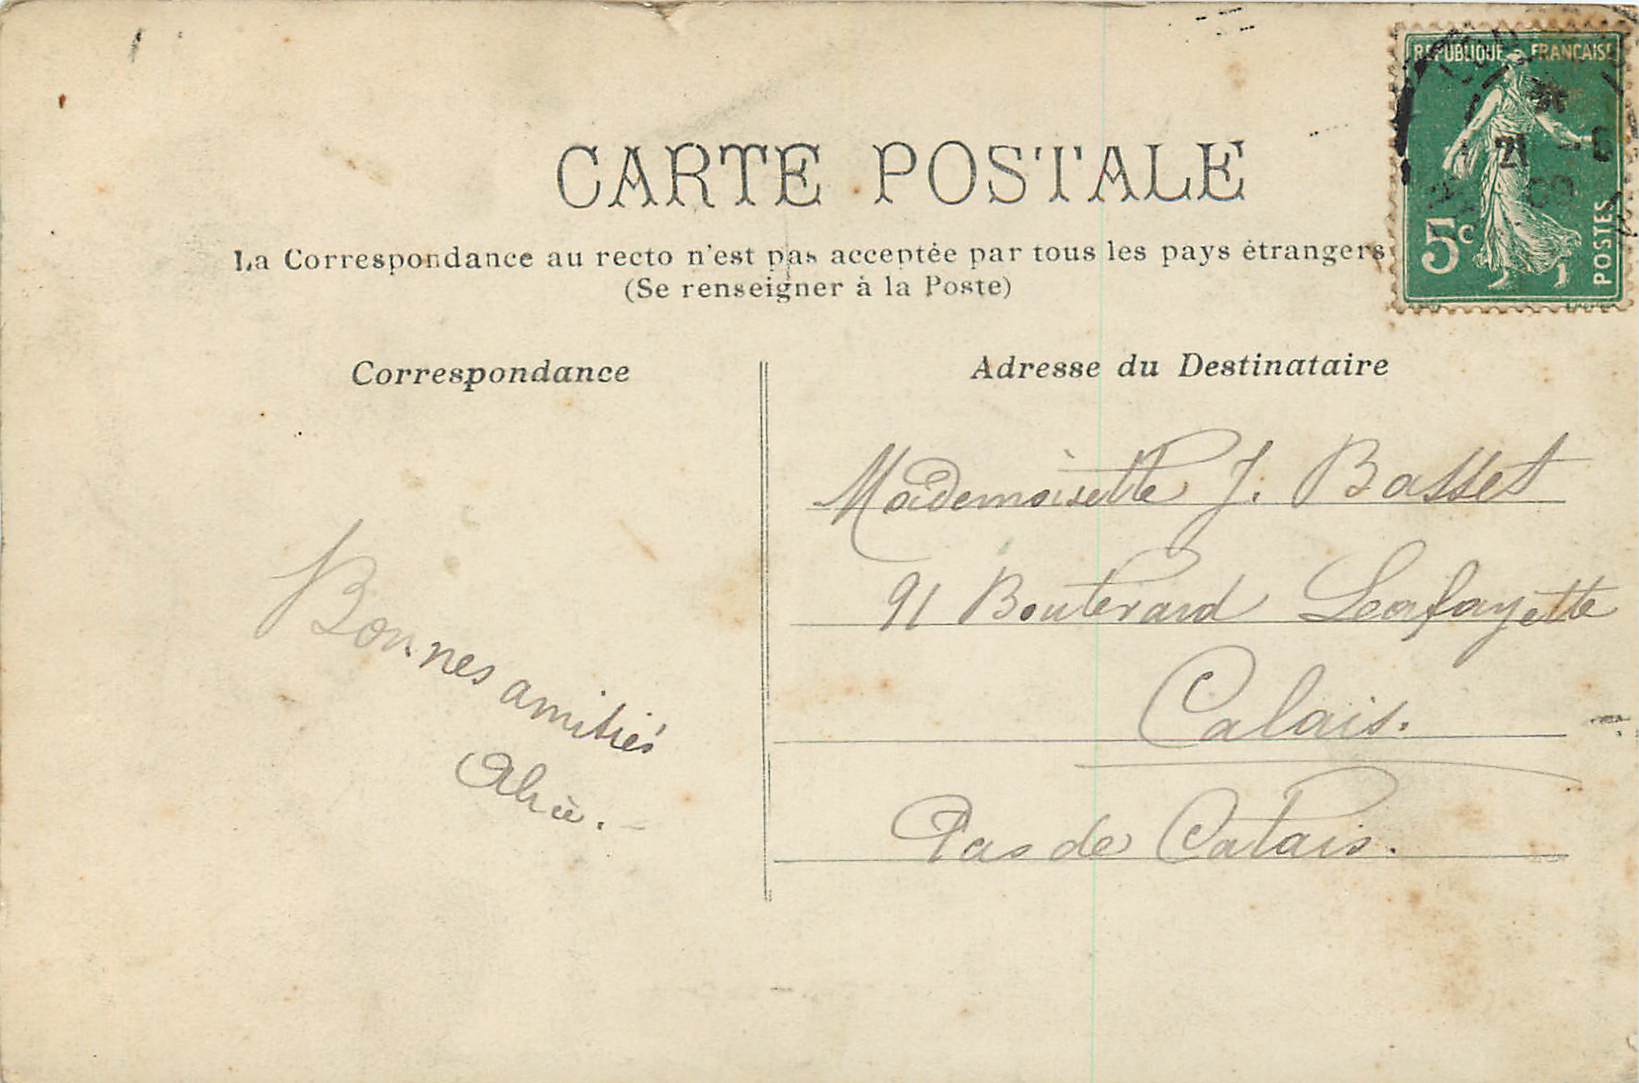 CARTE POSTALE
La Correspondance au recto n'est pas acceptée par tous les pays étrangers
(Se renseigner à la Poste)
REPUBLIQUE FRANÇAISE
21
5c
POSTES
Correspondance
Bonnes amitiés
Alice.
Adresse du Destinataire
Mademoiselle J. Basset
91 Boulevard Lafayette
Calais.
Pas de Calais.